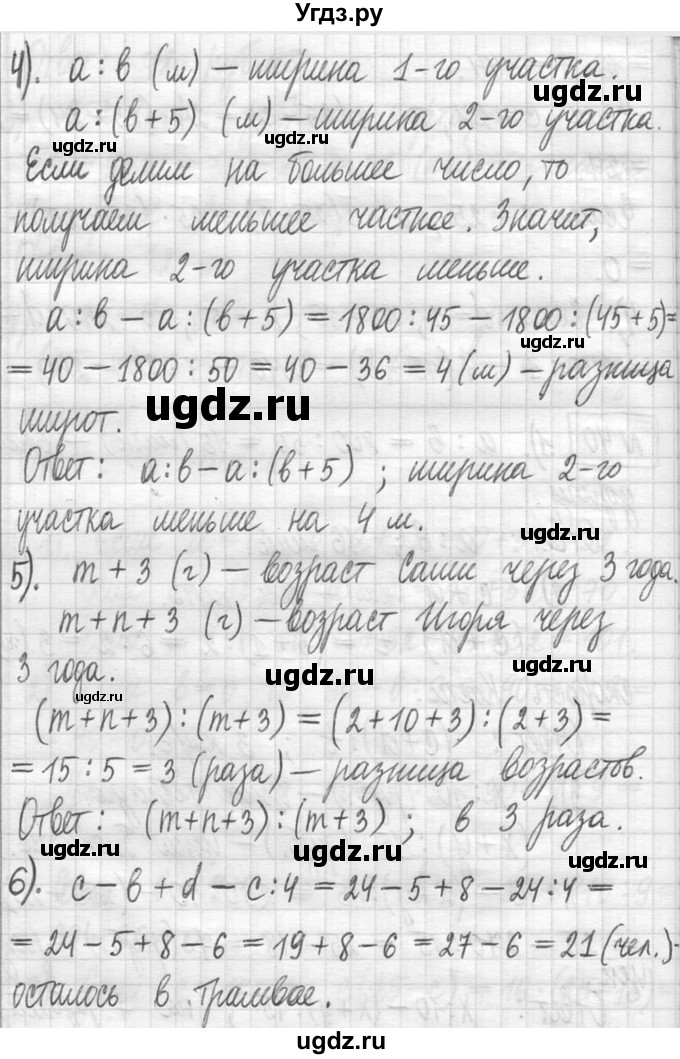 Угдз.ру
4). a : b (м) – ширина 1-го участка.
ugdz.ru
a : (b + 5) (м) – ширина 2-го участка.
ugdz.ru ugdz.ru
Если делим на большее число, то
получаем меньшее частное. Значит,
ширина 2-го участка меньше.
a : b – a : (b + 5) = 1800 : 45 – 1800 : (45 + 5) =
ugdz.ru
= 40 – 1800 : 50 = 40 – 36 = 4 (м) – разница
ugdz.ru
широт.
Ответ: a : b – a : (b + 5) ; ширина 2-го
участка меньше на 4 м.
ugdz.ru
5). m + 3 (г) – возраст Саши через 3 года.
m + n + 3 (г) – возраст Игоря через
ugdz.ru ugdz.ru
3 года.
ugdz.ru
(m + n + 3) : (m + 3) = (2 + 10 + 3) : (2 + 3) =
= 15 : 5 = 3 (раза) – разница возрастов.
Ответ: (m + n + 3) : (m + 3) ; в 3 раза.
ugdz.ru ugdz.ru
6). c – b + d – c : 4 = 24 – 5 + 8 – 24 : 4 =
= 24 – 5 + 8 – 6 = 19 + 8 – 6 = 27 – 6 = 21 (чел.) –
осталось в трамвае.
ugdz.ru